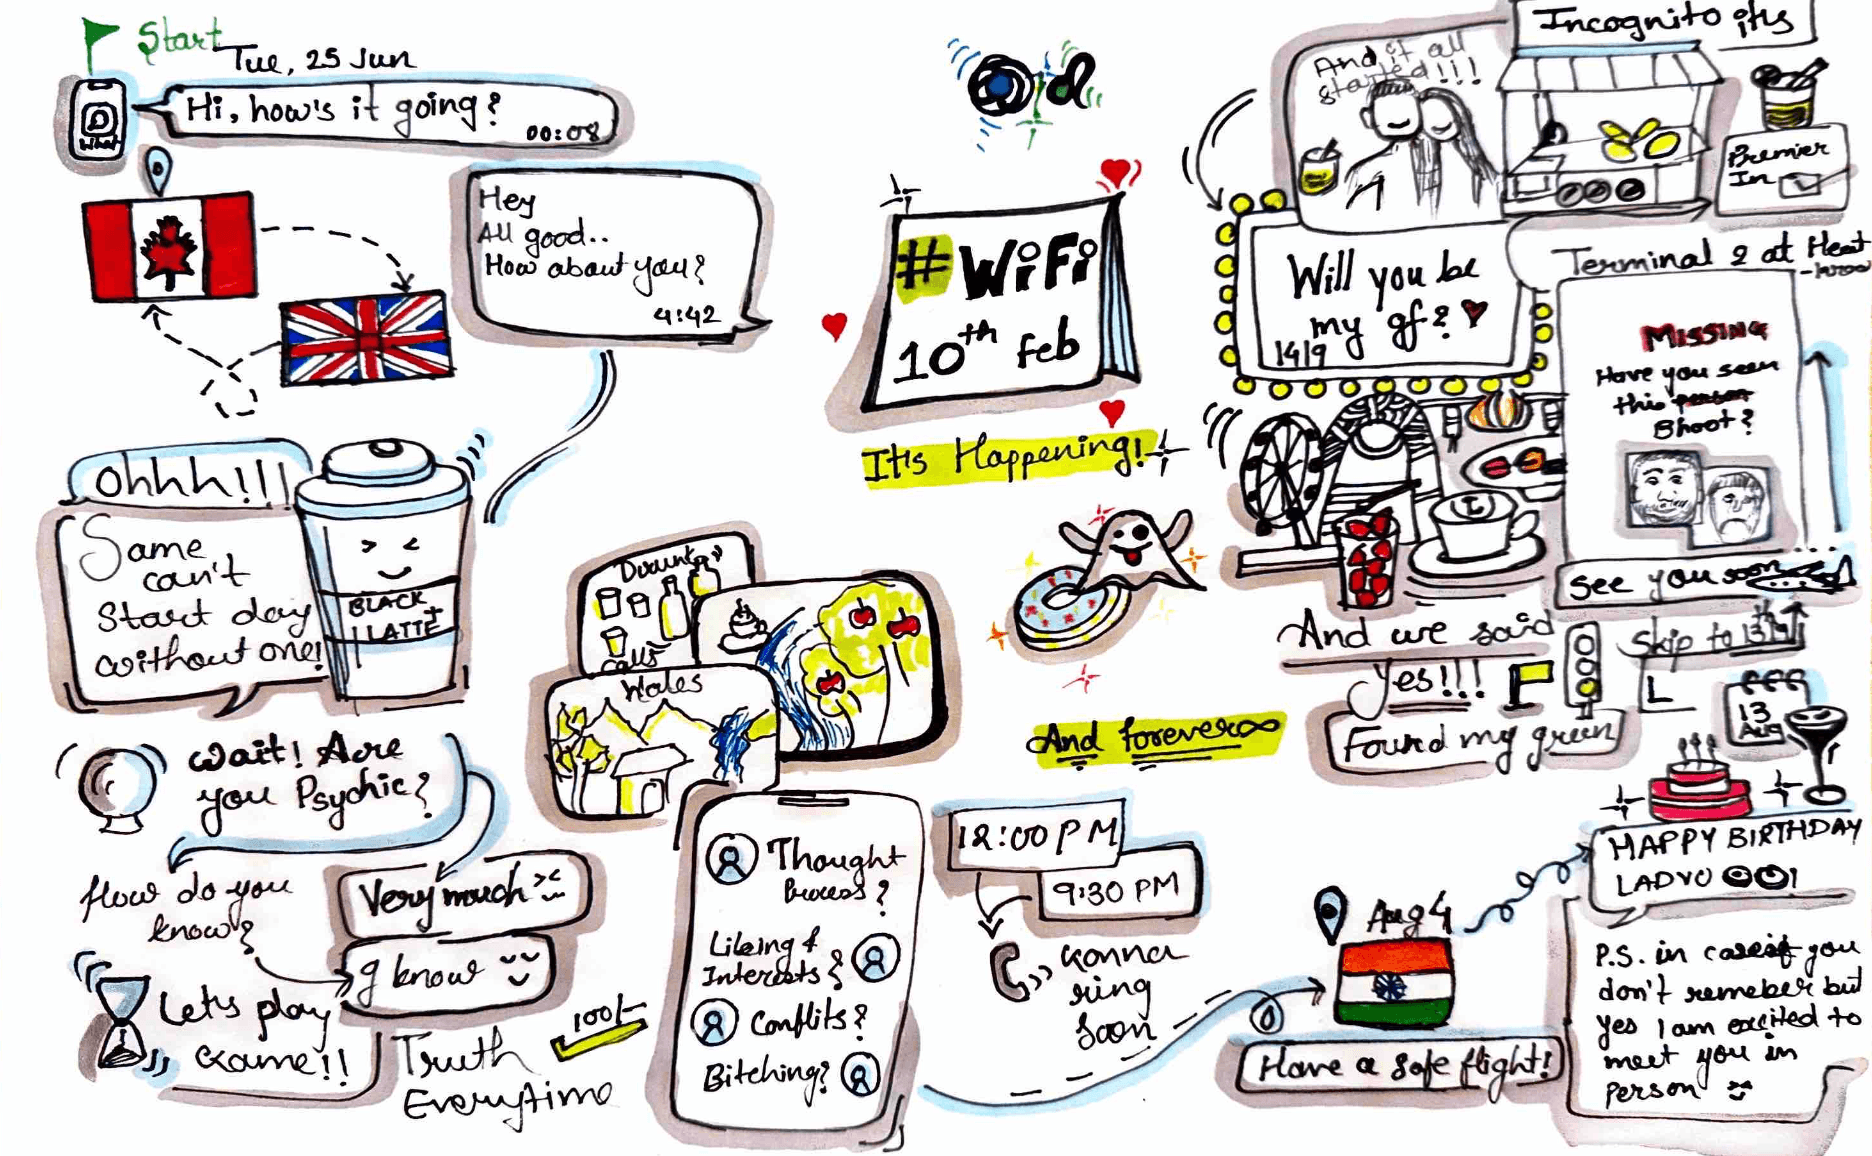 Start
Tue, 25 Jun
Hi, how's it going?
00:08
What
Hey
All good..
How about you?
4:42
Ohhh!!!
Same
can't
Start day
without one!
BLACK
LATTE
Wait! Are
you Psychic?
How do you
know?
Very much
I know
Let's play
Game!!
Truth
Everytime
100/-
calls
Wales
Thought
Process?
Liking &
Interests?
Conflits?
Bitching?
12:00 PM
9:30 PM
Gonna
ring
soon
Aug 4
Have a safe flight!
HAPPY BIRTHDAY
LADYO
P.S. in case if you
don't remeber but
yes I am excited to
meet you in
person
13
Aug
Skip to 13/9
L
See you soon
Terminal 2 at Heat
-hrow
MISSING
Have you seen
this person
Bhoot?
Incognito its
Premier
In
And it all
started!!!
Will you be
my gf?
14/9
L
And we said
Yes!!!
Found my green
#WiFi
10th feb
It's Happening!
And forever∞